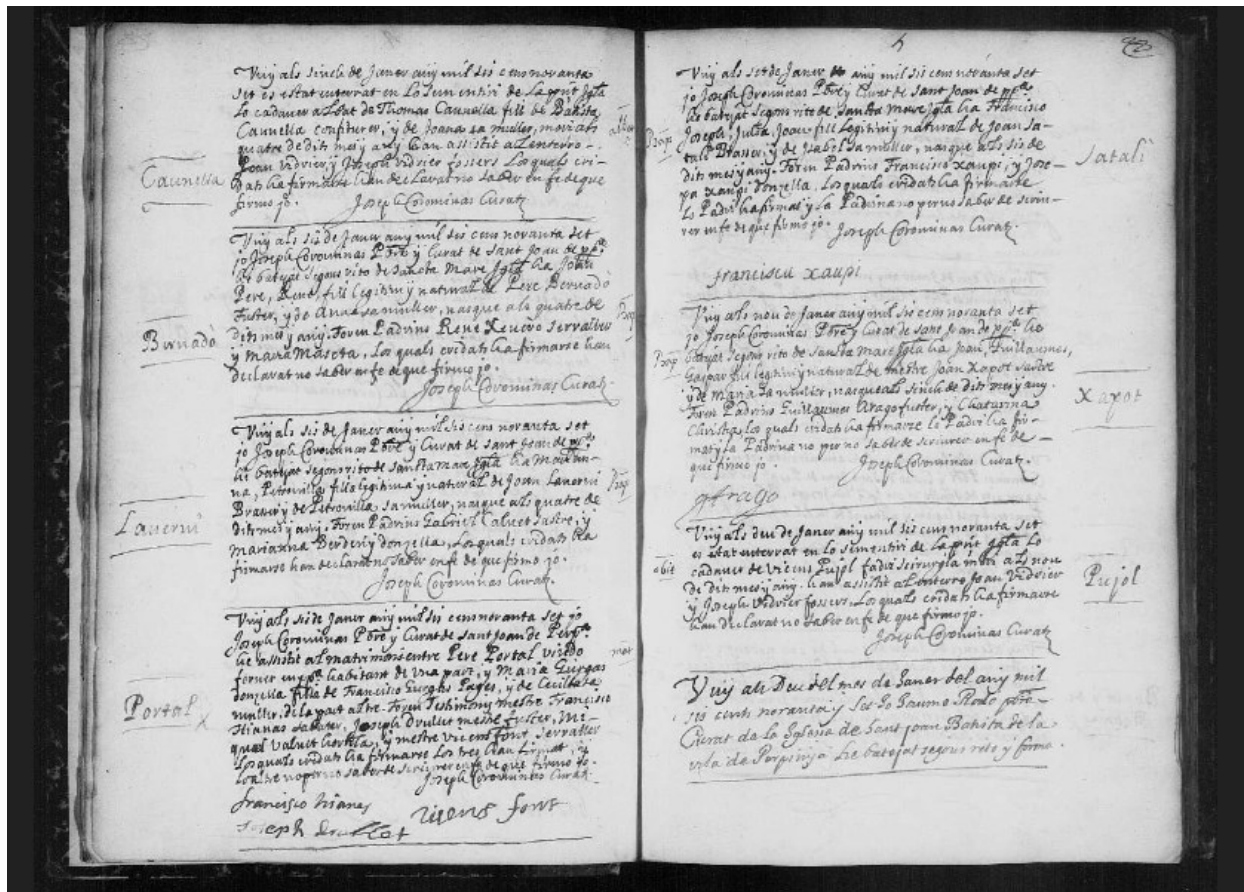 Vuy als sinch de Janer any mil sis cens noranta
set es estat enterrat en lo sementiri de la pnt Igla
lo cadaver albat de Thomas Caunella fill de Batista
Caunella confiturer, y de Joana sa muller, mori als
quatre de dit mes y any han assistit al enterro
Joan Vidrier, y Joseph Vidrier fossers Los quals cri-
dats ha firmarse han declarat no saber en fe de que
firmo jo.
Joseph Corominas Curat
Caunella
Vuy als sis de Janer any mil sis cens noranta set
jo Joseph Corominas Pbre y Curat de Sant Joan de ppa
he batejat segons rito de Sancta Mare Igla ha Joan
Pere, Rene, fill legitim y natural de Pere Bernadò
Fuster, y de Anna sa muller, nasque als quatre de
dit mes y any. Foren Padrins Rene Xevero serraller
y Maria Maseta, Los quals cridats ha firmarse han
declarat no saber en fe de que firmo jo.
Joseph Corominas Curat
Bernadò
Vuy als sis de Janer any mil sis cens noranta set
jo Joseph Corominas Pbre y Curat de Sant Joan de ppa
he batejat segons rito de Sancta Mare Igla ha Marian-
na, Petronilla filla legitima y natural de Joan
Brasser y de Petronilla sa muller, nasque als quatre de
dit mes y any. Foren Padrins Gabriel Calvet sastre, y
Marianna donzella, Los quals cridats ha
firmarse han declarat no saber en fe de que firmo jo.
Joseph Corominas Curat
Vuy als sis de Janer any mil sis cens noranta set jo
Joseph Corominas Pbre y Curat de Sant Joan de Perpa
he assistit al matrimoni entre Pere Portal viudo
forner en ppa habitant de una part, y Maria Gurgas
donzella filla de Francisco Gurgas Pages, y de Cecilia sa
muller, de la part altre. Foren Testimonis mestre Francisco
Hianas sabater, Joseph Drullet mestre fuster, Mi-
quel Valuet, y mestre Vicens Font serraller
Los quals cridats ha firmarse Los tres han firmat, y
lo altre no per no saber de scriurer en fe de que firmo jo.
Joseph Corominas Curat
Portal
Francisco hianas
Vicens font
Joseph Drullet
Vuy als set de Janer any mil sis cens noranta set
jo Joseph Corominas Pbre y Curat de Sant Joan de ppa
he batejat segons rito de Sancta Mare Igla ha Francisco
Joseph, Julia, Joan fill legitim y natural de Joan Sa-
tali Brasser, y de Isabel sa muller, nasque als sis de
dit mes y any. Foren Padrins Francisco Xaupi, y Jose-
pa Xaupi donzella, Los quals cridats ha firmarse
lo Padri ha firmat y la Padrina no per no saber de scriu-
rer en fe de que firmo jo. Joseph Corominas Curat
Satali
franciscu xaupi
Vuy als nou de Janer any mil sis cens noranta set
jo Joseph Corominas Pbre y Curat de Sant Joan de ppa he
batejat segons rito de Sancta Mare Igla ha Joan, Guillaumes,
Gaspar fill legitim y natural de mestre Joan Xapot sastre
y de Maria sa muller, nasque als sinch de dit mes y any.
Foren Padrins Guillaumes Arago fuster, y Chaterina
Christia, los quals cridats ha firmarse lo Padri ha fir-
mat y la Padrina no per no saber de scriurer en fe de
que firmo jo. Joseph Corominas Curat
Xapot
Arago
Vuy als deu de Janer any mil sis cens noranta set
es estat enterrat en lo sementiri de la pnt Igla lo
cadaver de Vicens Pujol fadri scirurgia mori als nou
de dit mes y any. han assistit al enterro Joan Vidrier
y Joseph Vidrier fossers, Los quals cridats ha firmarse
han declarat no saber en fe de que firmo jo.
Joseph Corominas Curat
obit
Pujol
Vuy als Deu del mes de Janer del any mil
sis cents noranta y set jo Jaume
Curat de la Iglesia de Sant Joan Batista de la
vila de Perpinya he batejat segons rito y forma